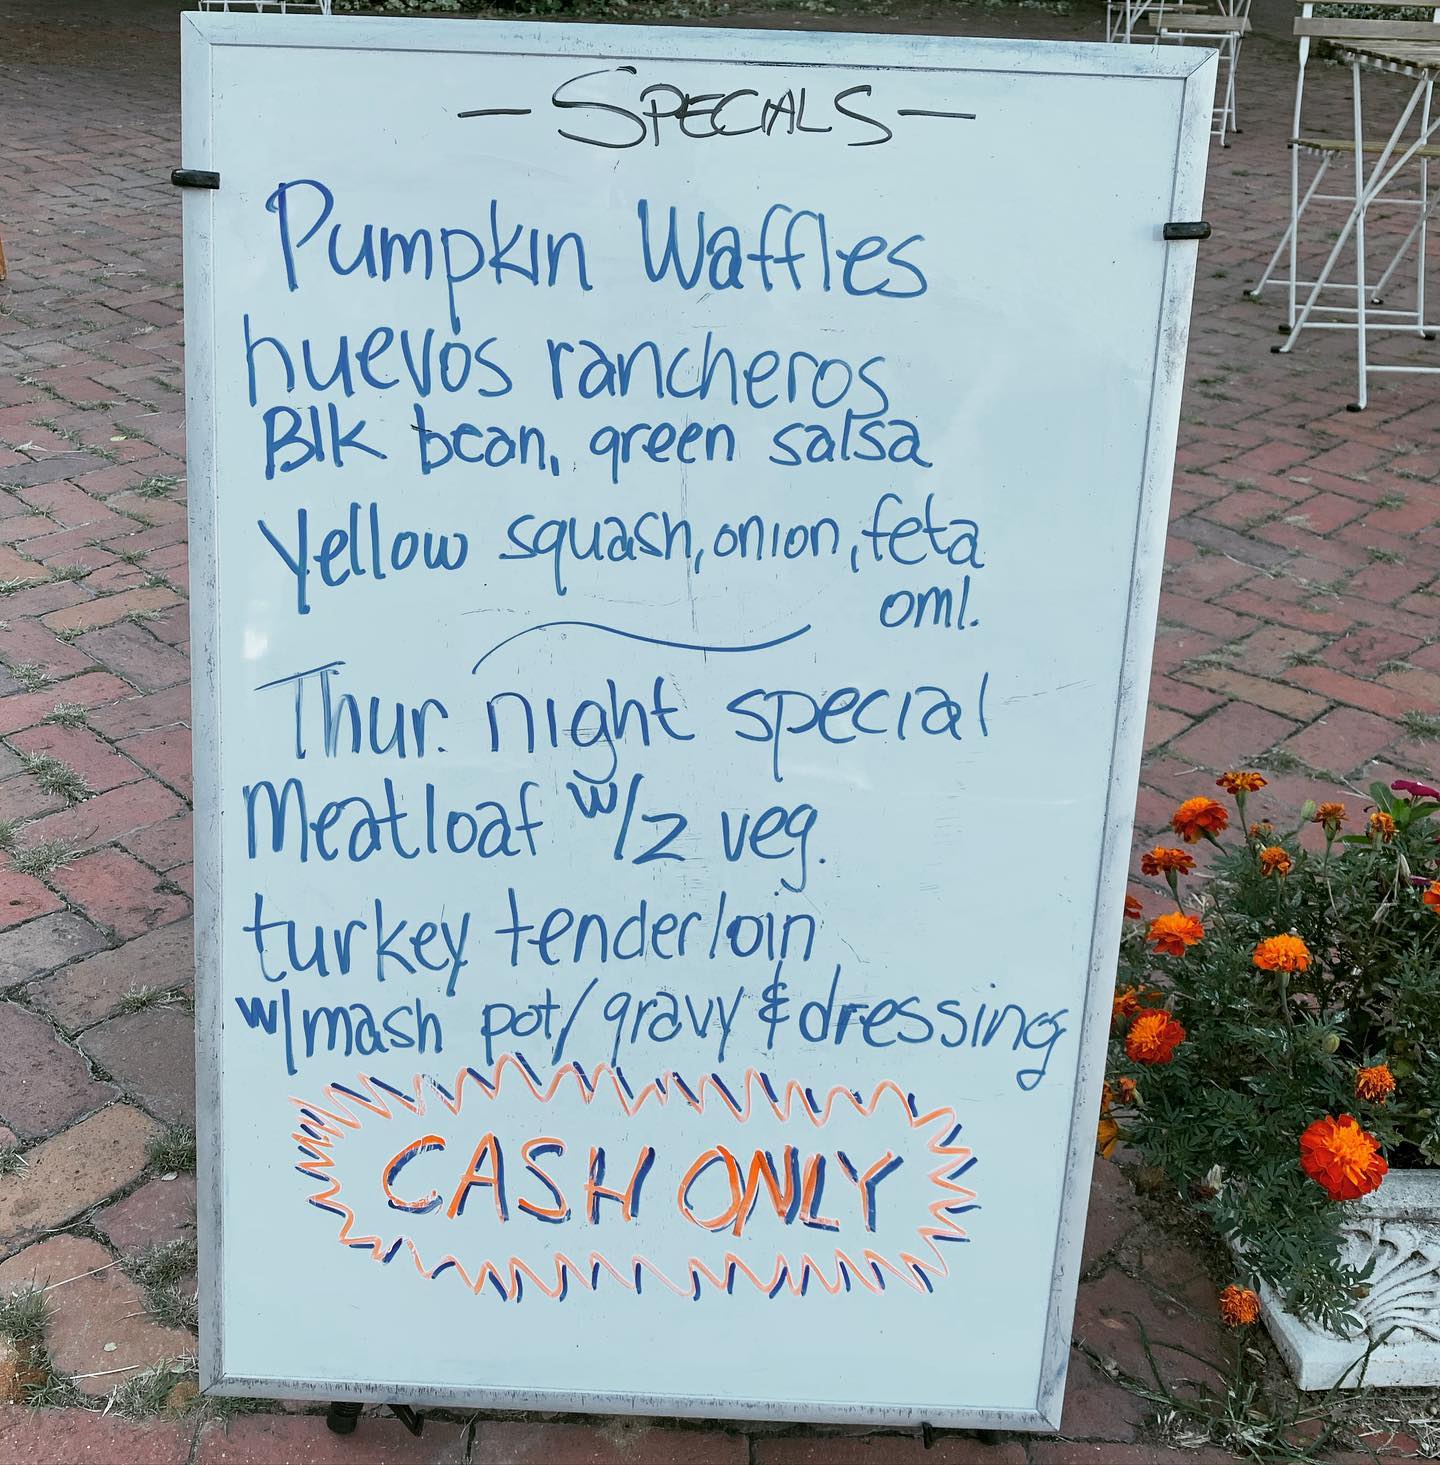 — SPECIALS —
Pumpkin Waffles
huevos rancheros
Blk bean, green salsa
Yellow squash, onion, feta
oml.
Thur. night special
Meatloaf w/2 veg.
turkey tenderloin
w/mash pot/gravy & dressing
CASH ONLY